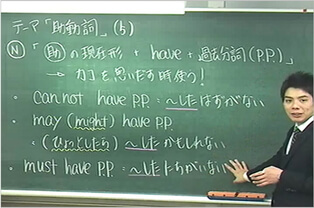 テーマ「助動詞」(5)
Ⓝ「助の現在形 + have + 過去分詞(P.P.)」
→ カコを思いだす時使う!
・cannot have P.P. = ~したはずがない
・may (might) have P.P.
= (ひょっとしたら) ~したかもしれない
・must have P.P. = ~したにちがいない